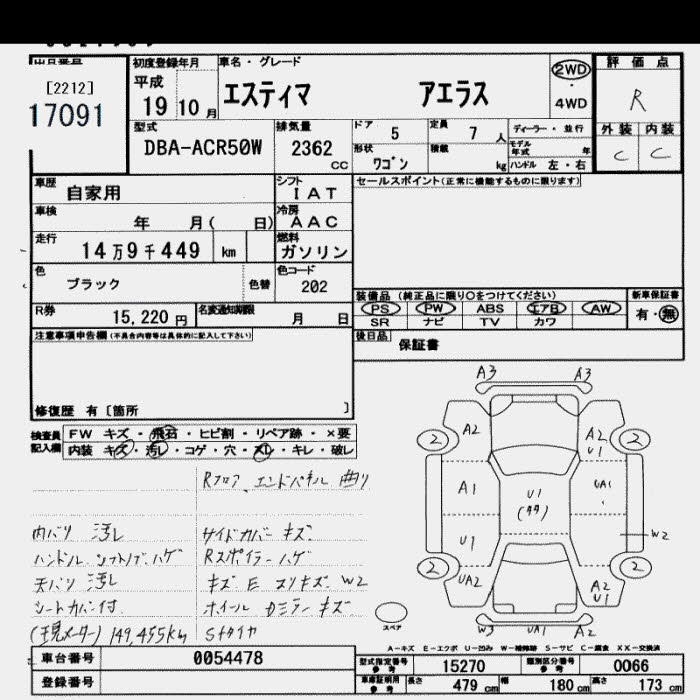 出品番号
[2212]
17091
初度登録年月
平成
19 10 月
車名・グレード
エスティマ アエラス
2WD
・
4WD
評価点
R
外装 内装
C C
型式
DBA-ACR50W
排気量
2362 CC
ドア 5
定員 7 人
形状 ワゴン
積載 kg
ディーラー・並行
モデル年式 年
ハンドル 左・右
車歴 自家用
シフト IAT
セールスポイント(正常に機能するものに限ります)
車検 年 月( 日)
冷房 AAC
走行 14万9千449 km
燃料 ガソリン
色 ブラック 色替
色コード 202
R券 15,220 円
名変通知期限 月 日
装備品 (純正品に限り○をつけてください)
新車保証書
PS PW ABS エアB AW
有・無
SR ナビ TV カワ
後日品 保証書
注意事項申告欄(不具合内容等は具体的に記入して下さい)
修復歴 有〔箇所 〕
検査員記入欄
FW キズ・飛石・ヒビ割・リペア跡・×要
内装 キズ・汚レ・コゲ・穴・スレ・キレ・破レ
Rフロア、エンドパネル 曲り
内バリ 汚レ
サイドカバー キズ
ハンドル シフトノブ ハゲ
Rスポイラー ハゲ
天バリ 汚レ
キズ E スリキズ W2
シートカバー付
ホイール ドミラー キズ
(現メーター) 149,455km
Sタイヤ
A3 A3
2 A2 A2 U1 2
A1 U1 (タタ) UA1
U1 W2
2 UA2 A2 U1 2
スペア
W3 UA1 A2
A-キズ E-エクボ U-凹み W-補修跡 S-サビ C-腐食 XX-交換済
車台番号 0054478
登録番号
型式指定番号 参考 15270
類別区分番号 参考 0066
車庫証明用 参考 長さ 479 cm 幅 180 cm 高さ 173 cm